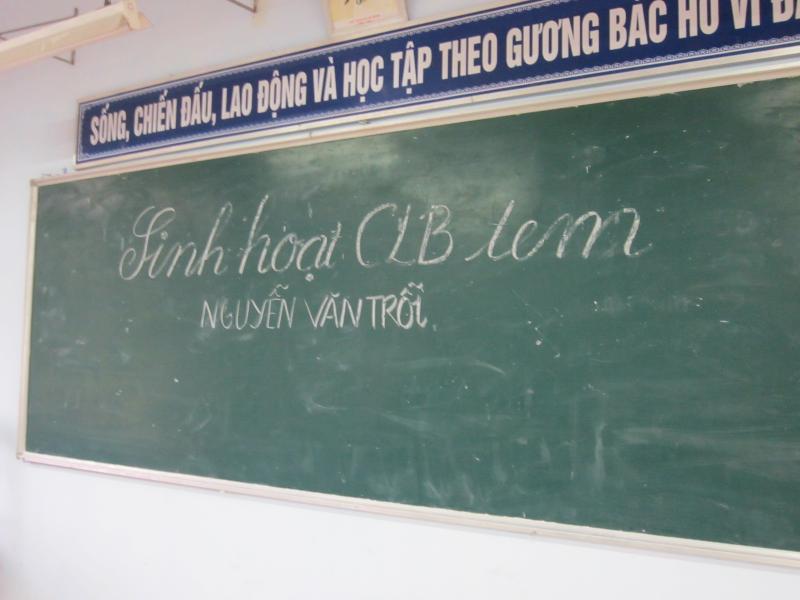 SỐNG, CHIẾN ĐẤU, LAO ĐỘNG VÀ HỌC TẬP THEO GƯƠNG BÁC HỒ VĨ
Sinh hoạt CLB tem
NGUYỄN VĂN TRỖI